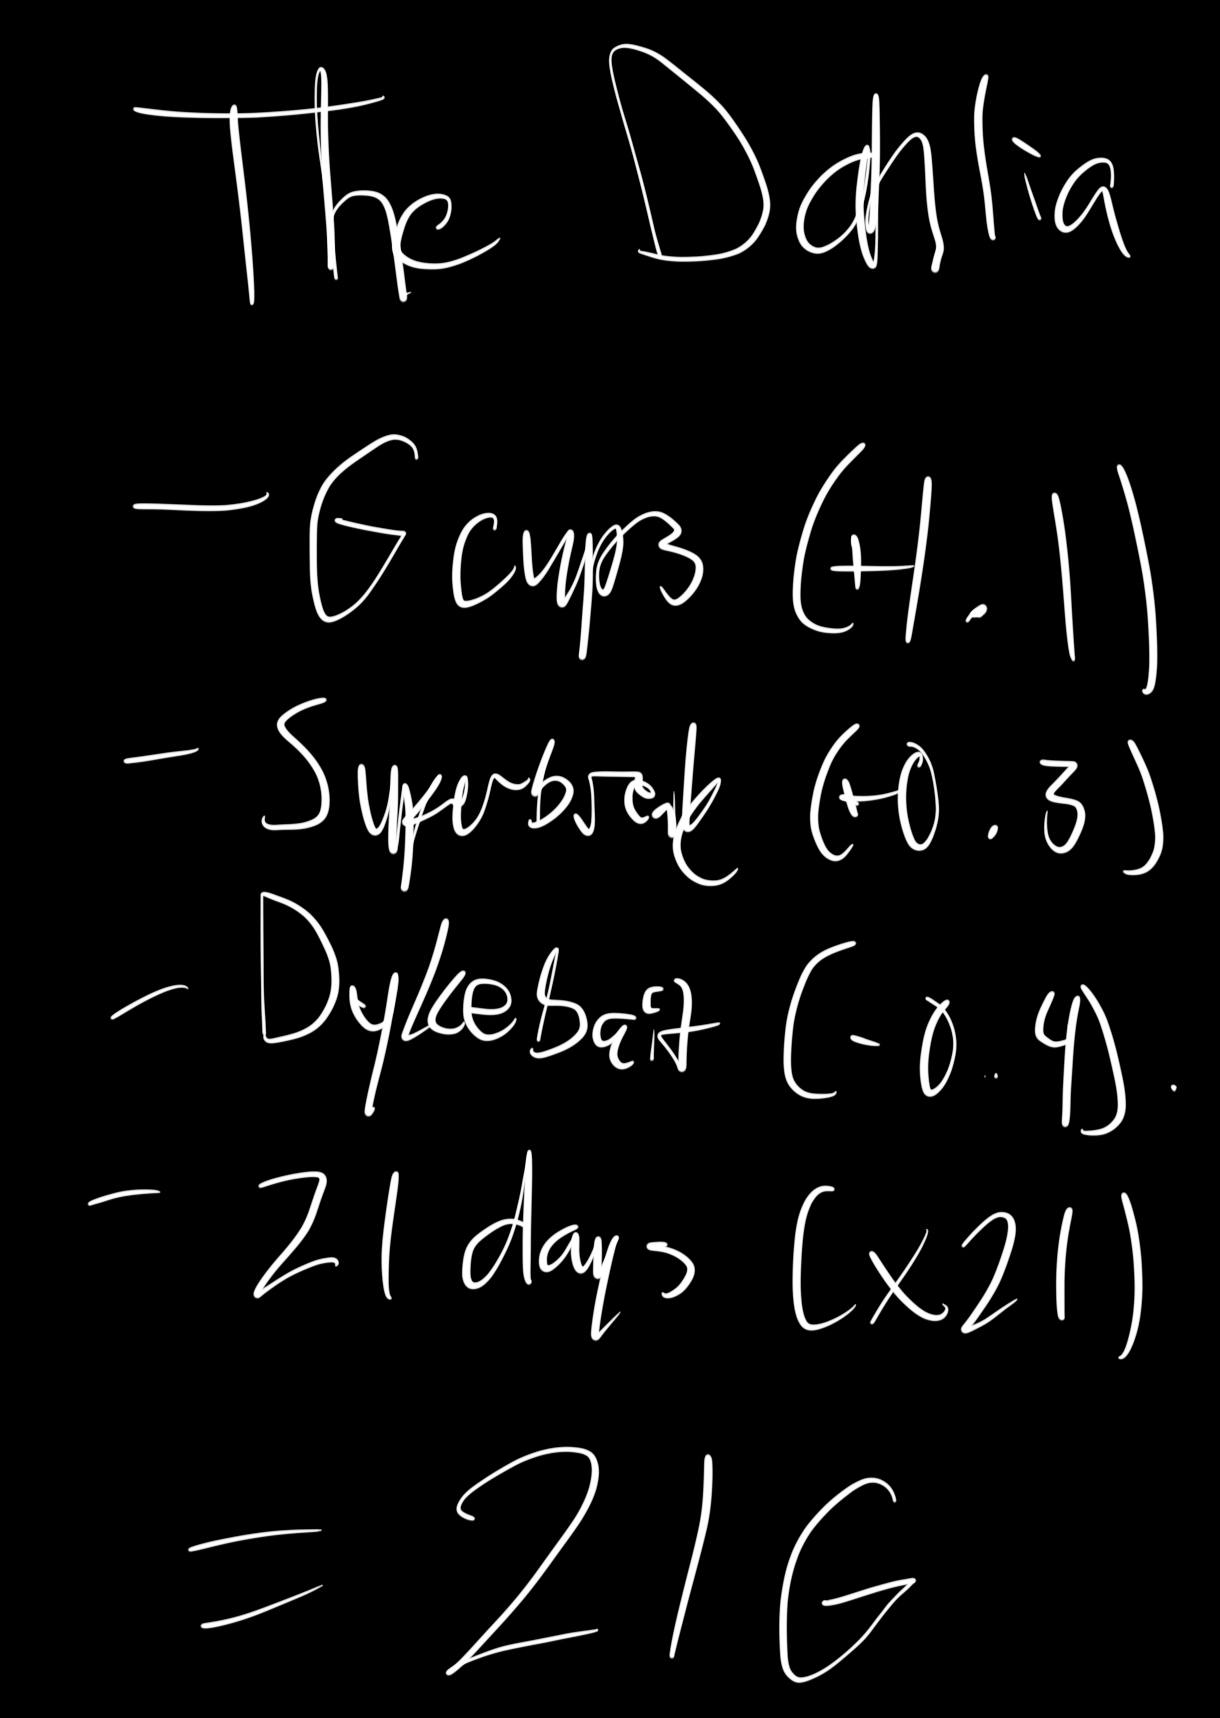 The Dahlia
- G cups (+1.1)
- Superbreak (+0.3)
- Dykebait (-0.4).
- 21 days (x21)
= 21G